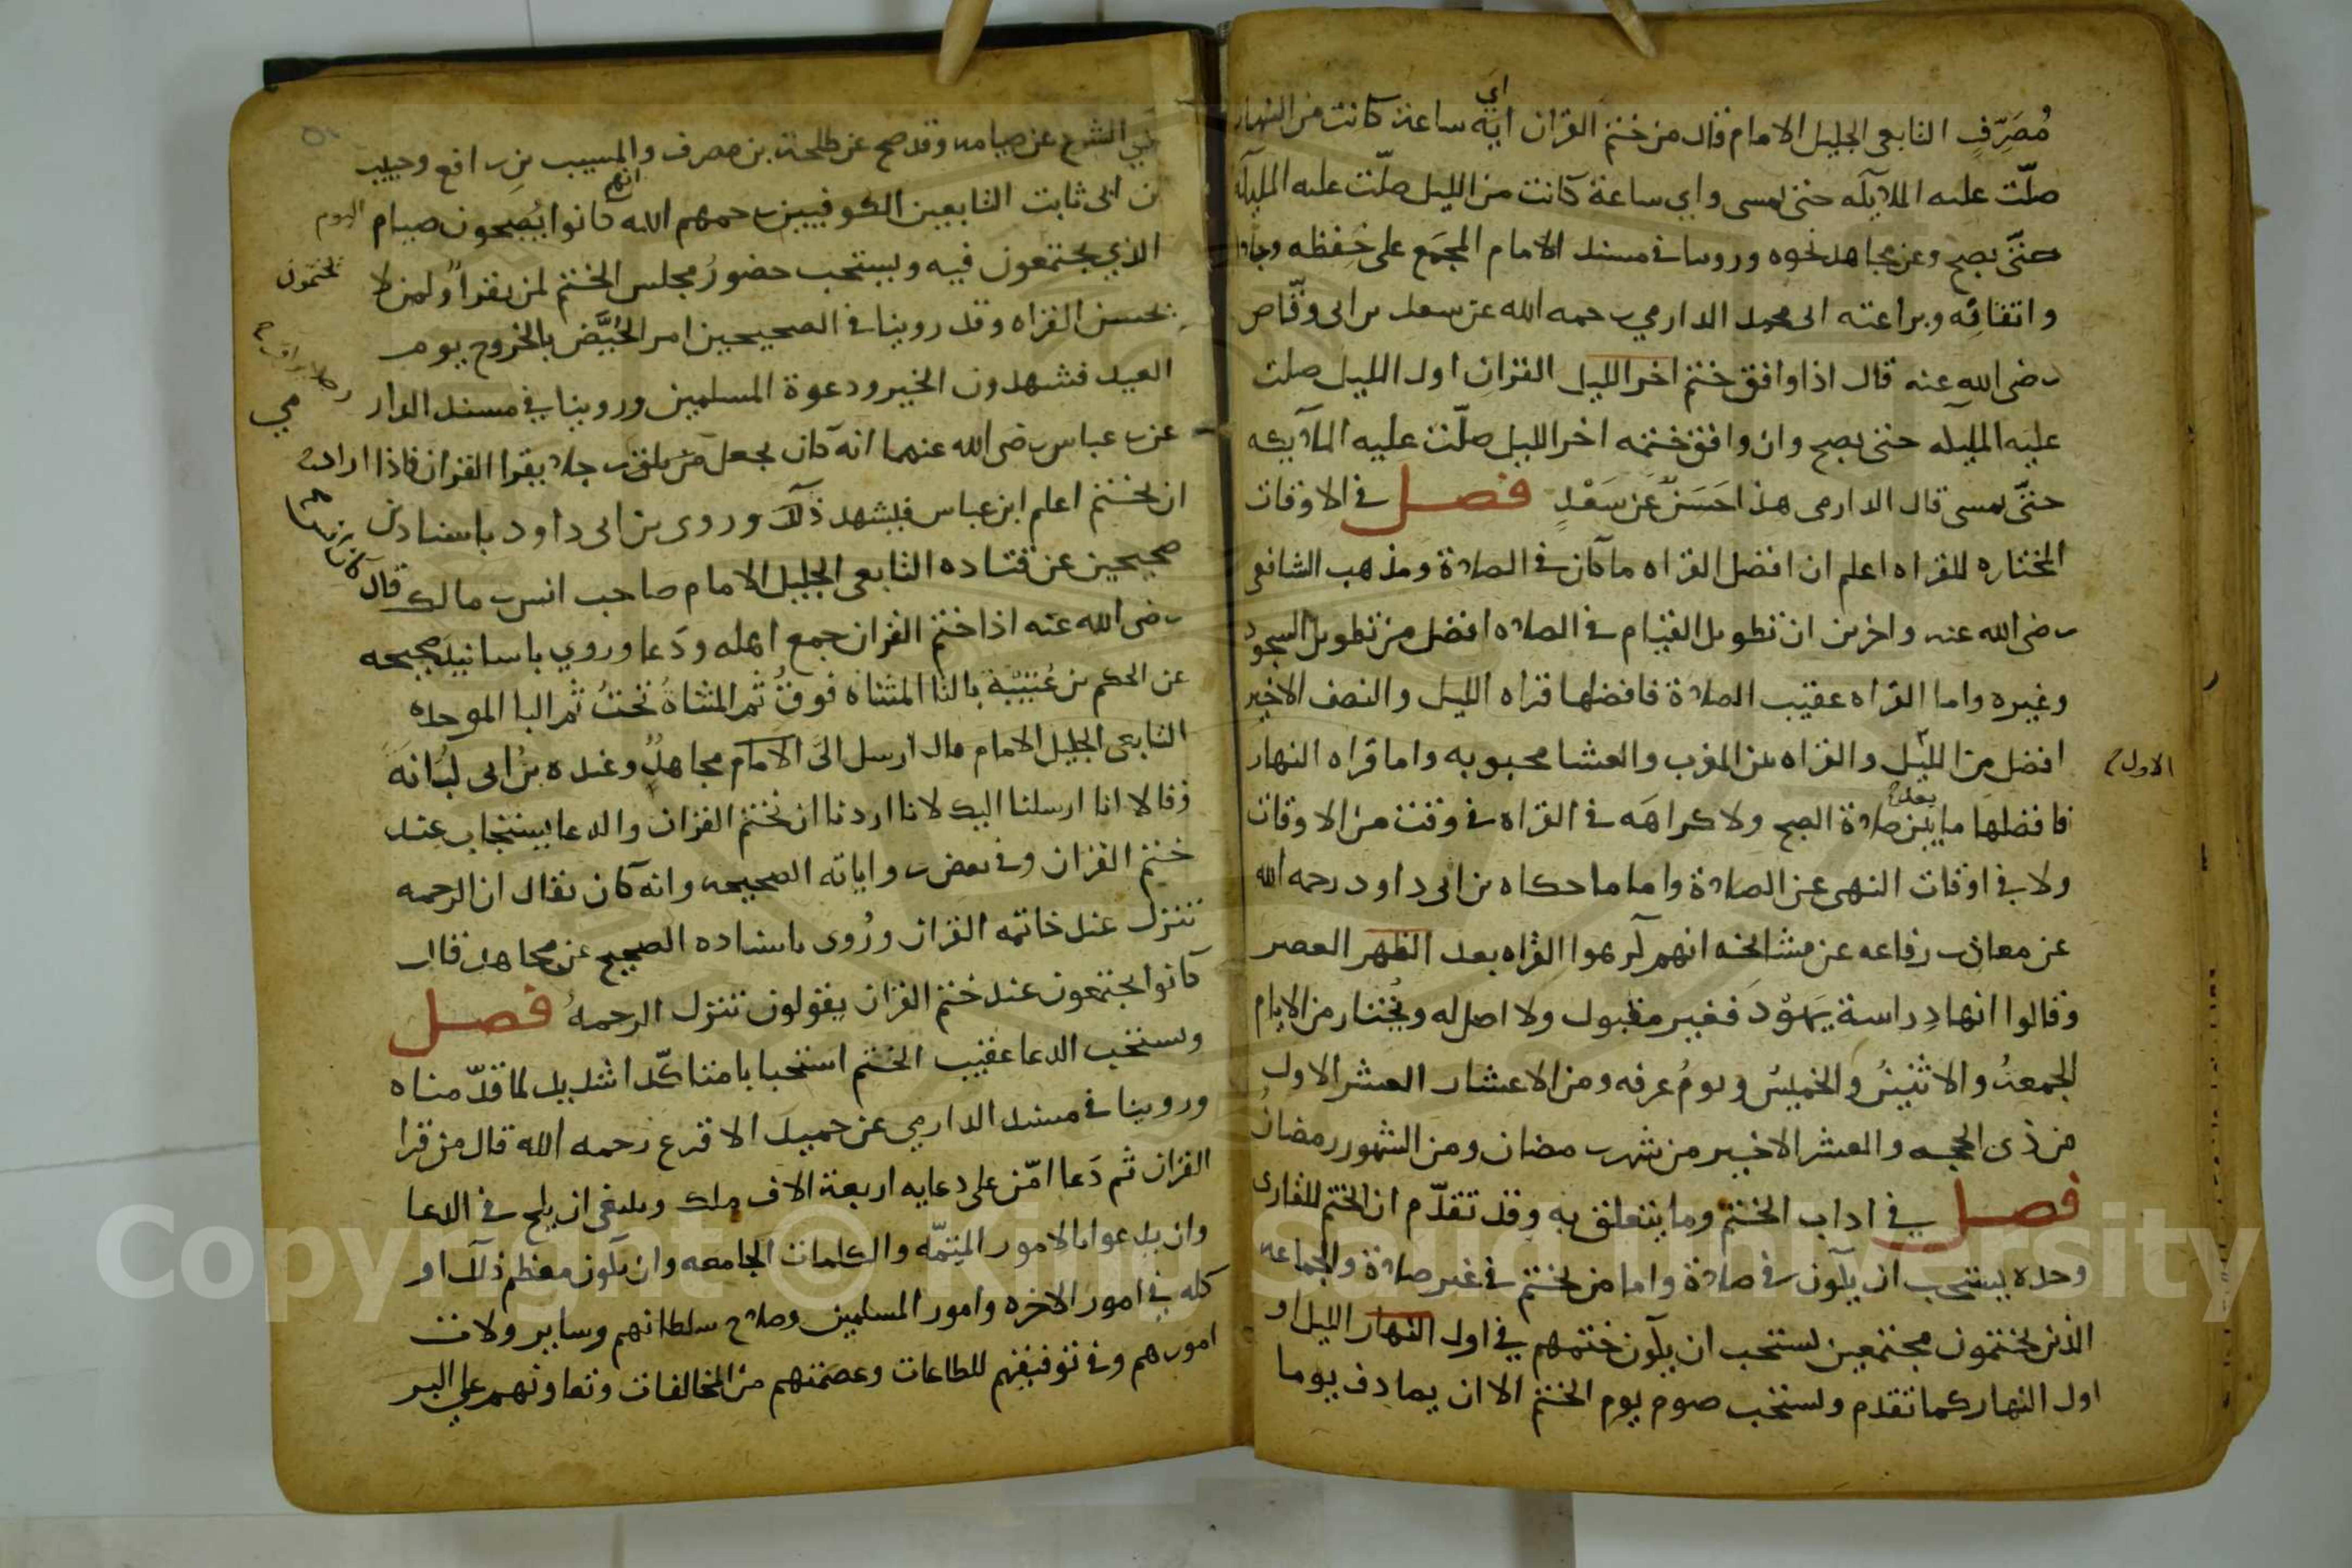 مُصَرِّفٍ التابعى الجليل الامام قال من ختم القران ايّة ساعة كانت من النهار
اي
صلّت عليه الملايكه حتى يمسى واي ساعة كانت من الليل صلّت عليه الملايكه
حتّى يصبح وعن مجاهد نحوه وروينا فى مسند الامام المجمَع على حِفظه وجلالته
واتقانِه وبراعته ابى محمد الدارمي رحمه الله عن سعد بن ابى وقّاص
رضى الله عنه قال اذا وافق ختم اخر الليل القرانِ اول الليل صلت
عليه الملايكه حتى يصبح وان وافق ختمه اخر الليل صلّت عليه الملايكه
حتّى يمسى قال الدارمى هذا حَسَنٌ عَن سَعْدٍ فصل فى الاوقات
المختاره للقراه اعلم ان افضل القراه ما كان فى الصلاة ومذهب الشافعى
رضى الله عنه واخرين ان تطويل القيام فى الصلاه افضل من تطويل السجود
وغيره واما القراه عقيب الصلاة فافضلها قراه الليل والنصف الاخير
افضل من الليل والقراه بين المغرب والعشا محبوبه واما قراه النهار
الاول
فافضلها ما بين صلاة الصبح ولا كراهَه فى القراه فى وقت من الاوقات
بعد
ولا فى اوقات النهى عن الصلاة واما ما حكاه بن ابى داود رحمه الله
عن معاذ بن رفاعه عن مشايخه انهم كرهوا القراه بعد الظهر العصر
وقالوا انها دِراسة يَهُوْدَ فغير مقبول ولا اصل له ويُختار من الايام
الجمعةُ والاثنينُ والخميسُ ويومُ عرفه ومن الاعشار العشر الاول
من ذى الحجه والعشر الاخير من شهر رمضان ومن الشهور رمضانُ
فصل في اداب الختم وما يتعلق به وقد تقدّم ان الختم للقارى
وحده يستحب ان يكون فى صلاة واما من يختم فى غير صلاة والجماعه
الذين يختمون مجتمعين يستحب ان يكون ختمهم في اول النهار الليل او
اول النهار كما تقدم ويستحب صوم يوم الختم الا ان يصادف يوما
نهي الشرع عن صيامه وقد صح عن طلحة بن مصرف والمسيب بن رافع وحبيب
بن ابى ثابت التابعين الكوفيين رحمهم الله كانوا يُصبحون صيام اليوم
انهم
الذي يجتمعون فيه ويستحب حضورُ مجلس الختم لمن يقرأ ولمن لا
يختمون
يحسن القراه وقد روينا فى الصحيحين امر الحُيَّض بالخروج يوم
العيد فشهدون الخير ودعوة المسلمين وروينا في مسند الدار
مي
عن بن عباس رضى الله عنهما انه كان يجعل من يلق رجلا يقرا القران فاذا اراد
ان يختم اعلم ابن عباس فيشهد ذلك وروى بن ابى داود باسنادين
صحيحين عن قتاده التابعى الجليل الامام صاحب انس بن مالك قال
رضى الله عنه اذا ختم القران جمع اهله ودَعا وروي باسانيد صحيحه
عن الحكم بن عُتَيْبَة بالتا المثناه فوقُ ثم المثناةُ تحتُ ثم البا الموحده
التابعى الجليل الامام قال ارسل الىّ الامام مجاهدٌ وعنده بن ابى لبُابَة
فقالا انا ارسلنا اليك لانا اردنا ان نختم القران والدعا يستجاب عند
ختم القران وفى بعض رواياته الصحيحه وانه كان يقال ان الرحمه
تنزل عند خاتمه القران ورُوى باسناده الصحيح عن مجاهد قال
كانوا يجتمعون عند ختم القران يقولون تنزل الرحمهُ فصل
ويستحب الدعا عقيب الختم استحبابا متاكّدا شديدا لما قدّمناه
وروينا فى مسند الدارمي عن حميد الاقرع رحمه الله قال من قرا
القران ثم دَعا امّن على دعايه اربعة الاف ملك وينبغى ان يلح فى الدعا
وان يدعو بالامور المُهِمّه والكلمات الجامعه وان يكون معظم ذلك او
كله في امور الاخره وامور المسلمين وصلاح سلطانهم وساير ولاة
امورهم وفى توفيقهم للطاعات وعصمتهم من المخالفات وتعاونهم على البر
Copyright © King Saud University